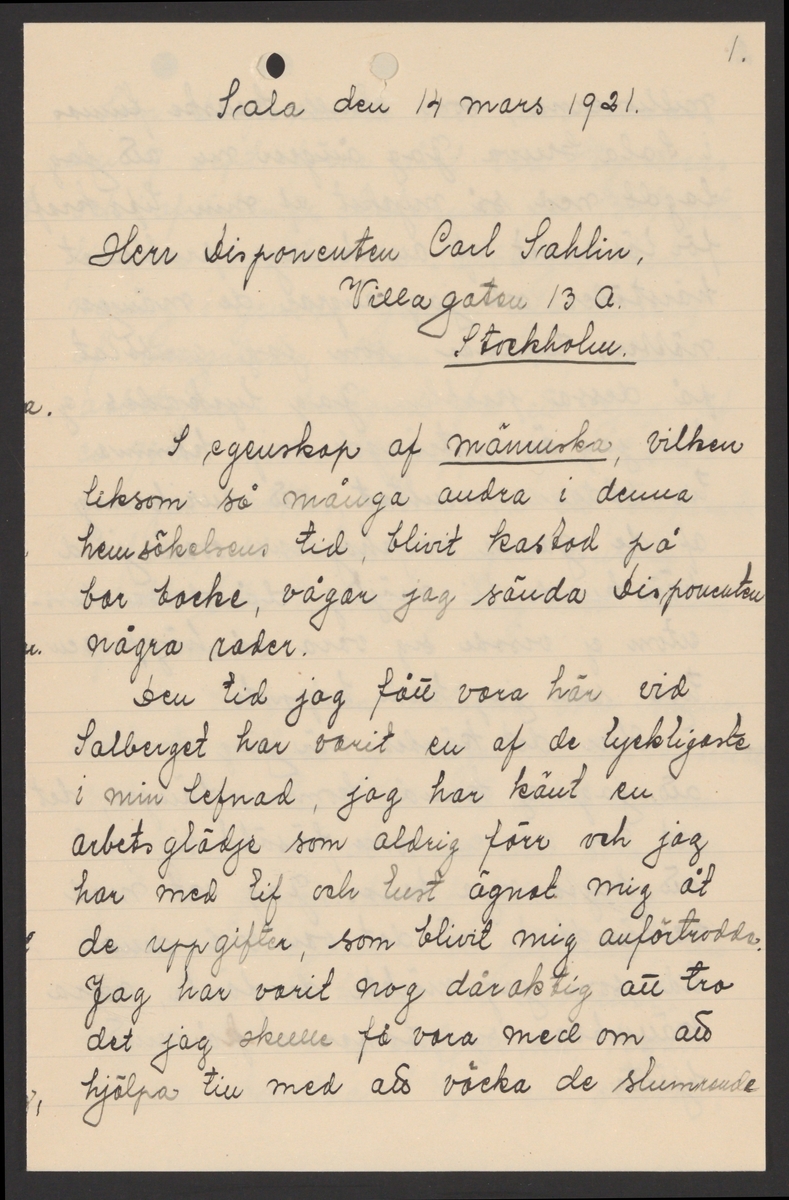 1.
Sala den 14 mars 1921.
Herr Disponenten Carl Sahlin,
Villagatan 13 A.
Stockholm.
I egenskap af människa, vilken
liksom så många andra i denna
hemsökelsens tid, blivit kastad på
bar backe, vågar jag sända Disponenten
några rader.
Den tid jag fått vara här vid
Salberget har varit en af de lyckligaste
i min lefnad, jag har känt en
arbetsglädje som aldrig förr och jag
har med lif och lust ägnat mig åt
de uppgifter, som blivit mig anförtrodda.
Jag har varit nog dåraktig att tro
det jag skulle få vara med om att
hjälpa till med att väcka de slumrande